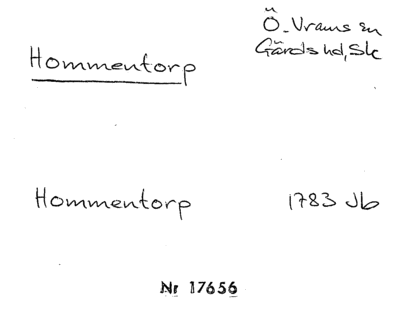 Ö. Vrams sn
Gärds hd, Sk
Hommentorp
Hommentorp 1783 Jb
Nr 17656